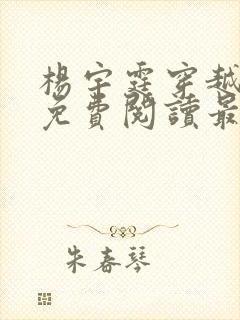 楊宇霆穿越
免費閱讀最
朱春琴